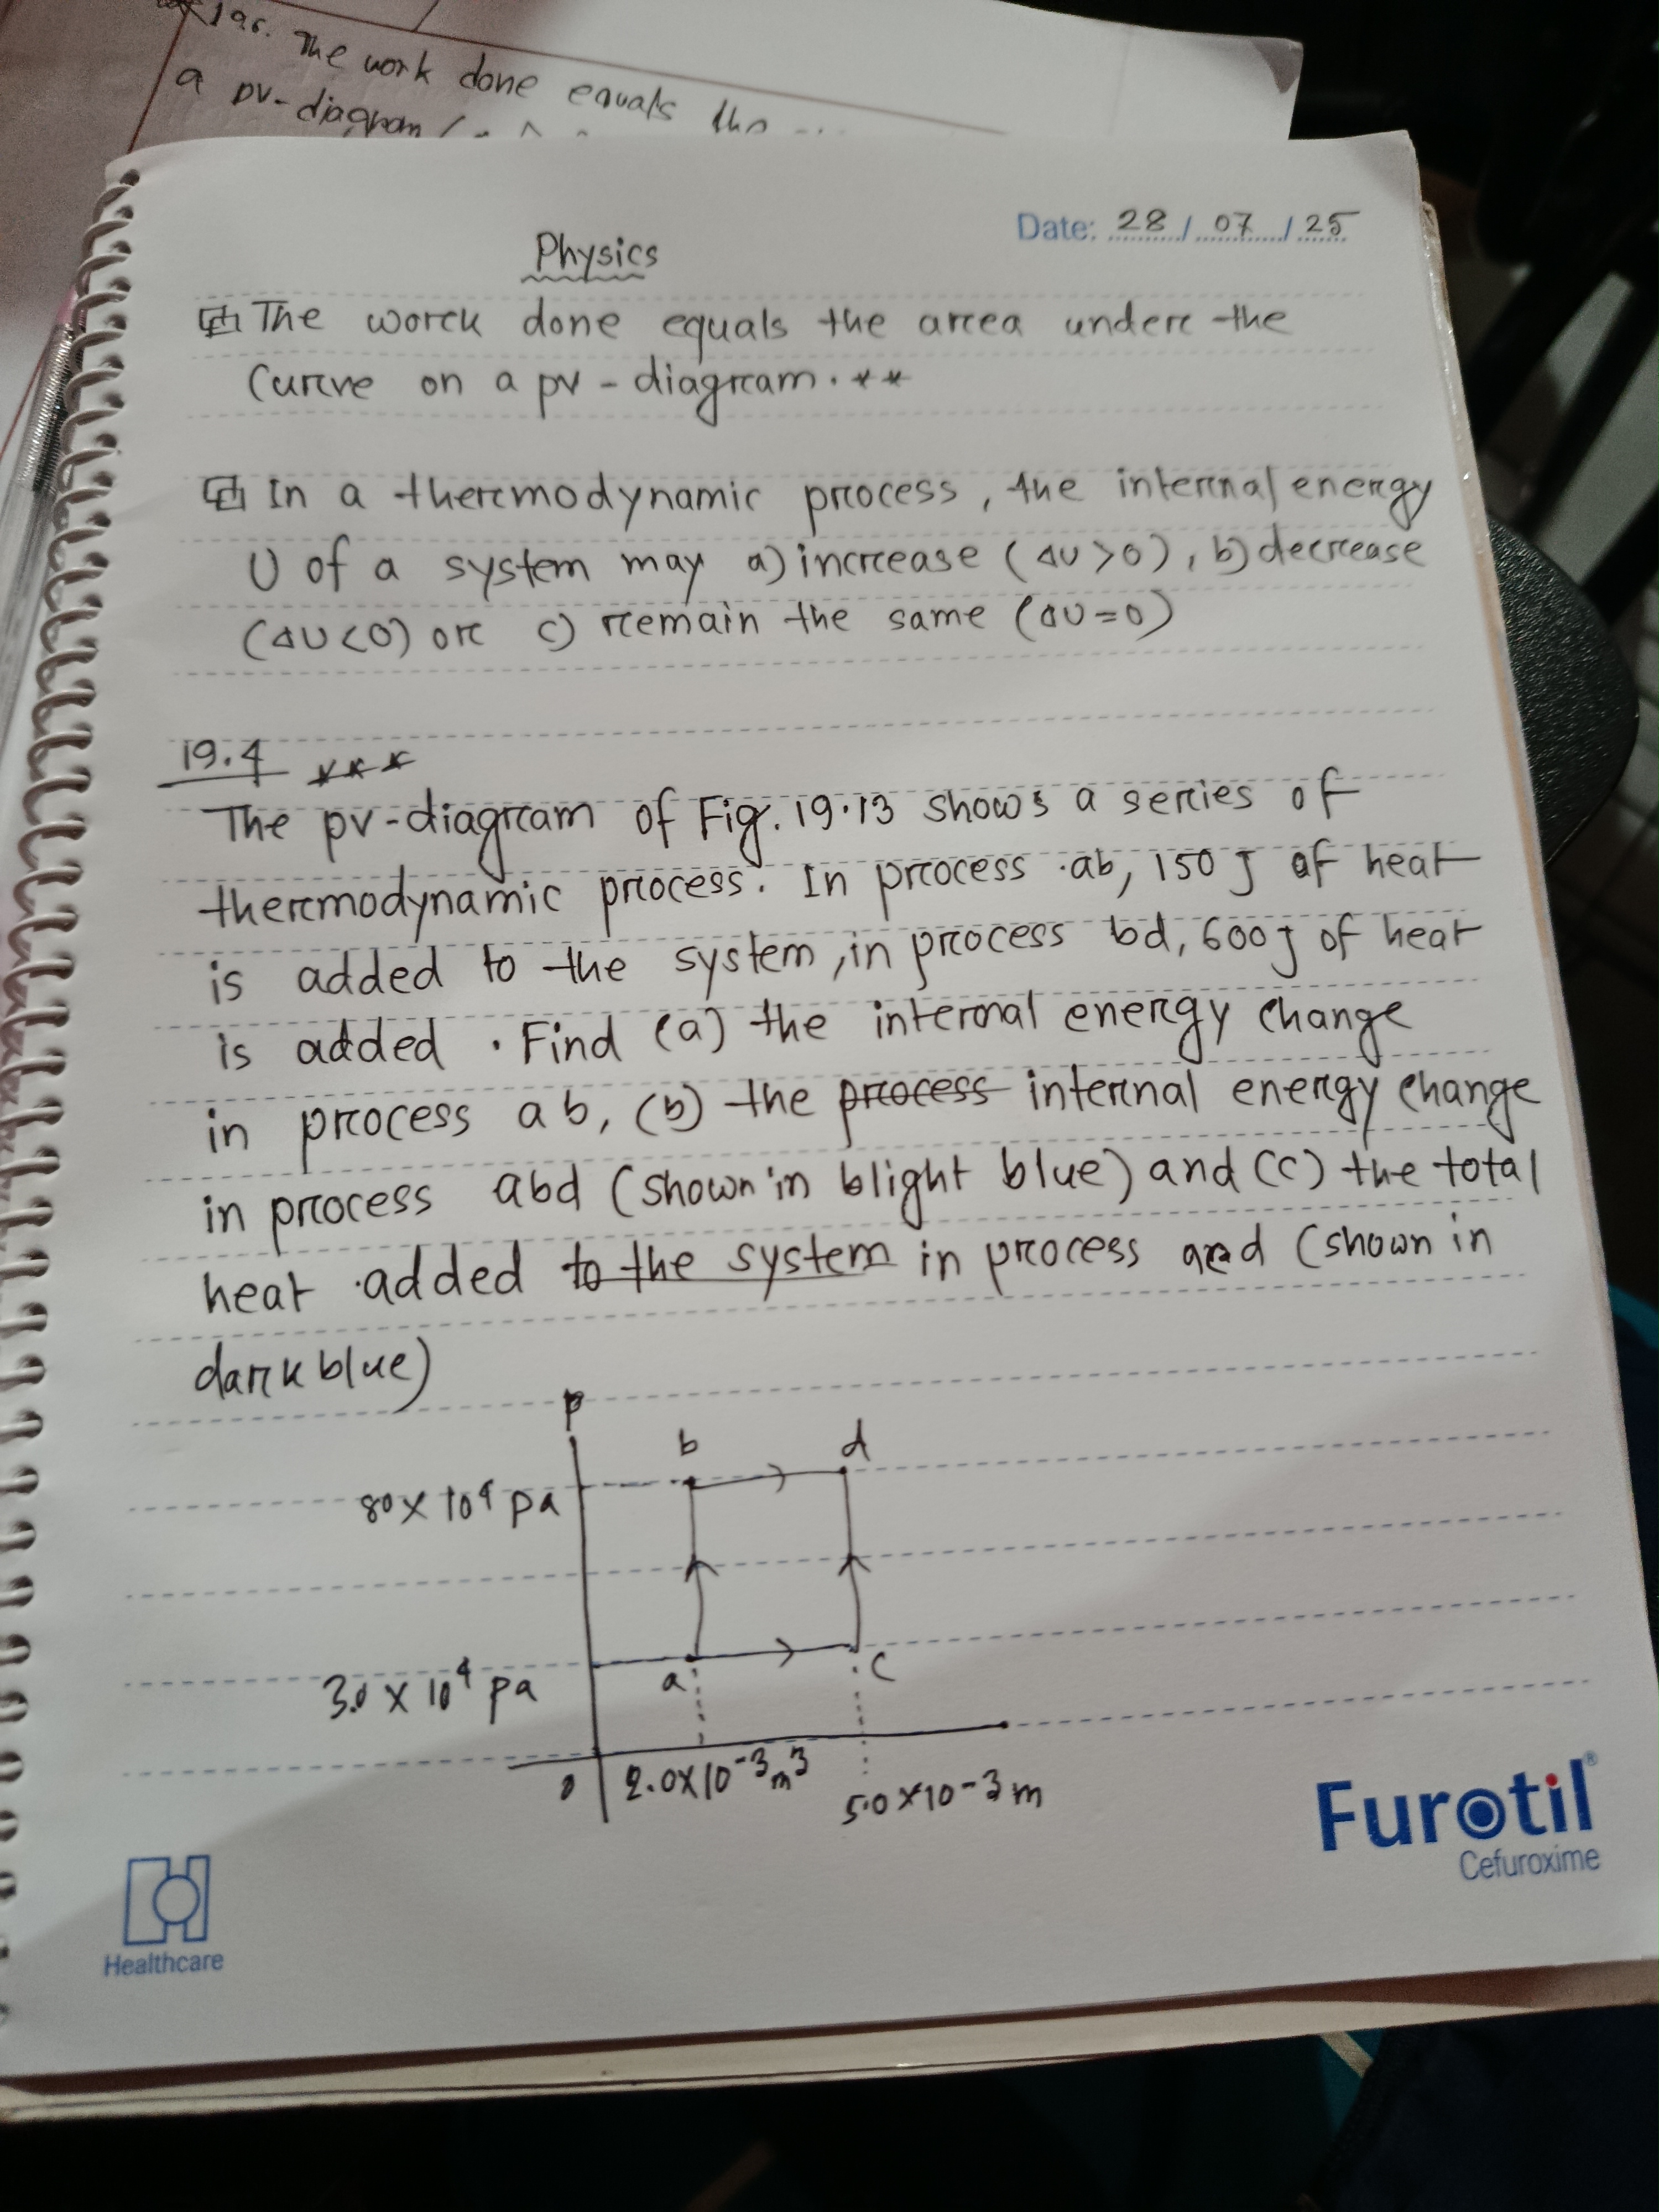 196. The work done equals the
a pv-diagram
Date: 28/07/25
Physics
The worck done equals the arcea underc the
Curcve on a pv-diagrcam. **
In a thercmodynamic prcocess, the intercnal enercgy
U of a system may a) incrcease (ΔU>0), b) decrcease
(ΔU<0) orc c) rcemain the same (ΔU=0)
19.4 ***
The pv-diagrcam of Fig. 19.13 shows a sercies of
thercmodynamic prcocess. In prcocess ab, 150 J of heat
is added to the system, in prcocess bd, 600 J of heat
is added. Find (a) the internal enercgy change
in prcocess ab, (b) the prcocess intercnal enercgy change
in prcocess abd (shown in blight blue) and (c) the total
heat added to the system in prcocess acd (shown in
darck blue)
P
b d
80 x 10⁴ pa
a c
3.0 x 10⁴ pa
0 2.0x10⁻³m³
5.0x10-3m
Furotil®
Cefuroxime
Healthcare